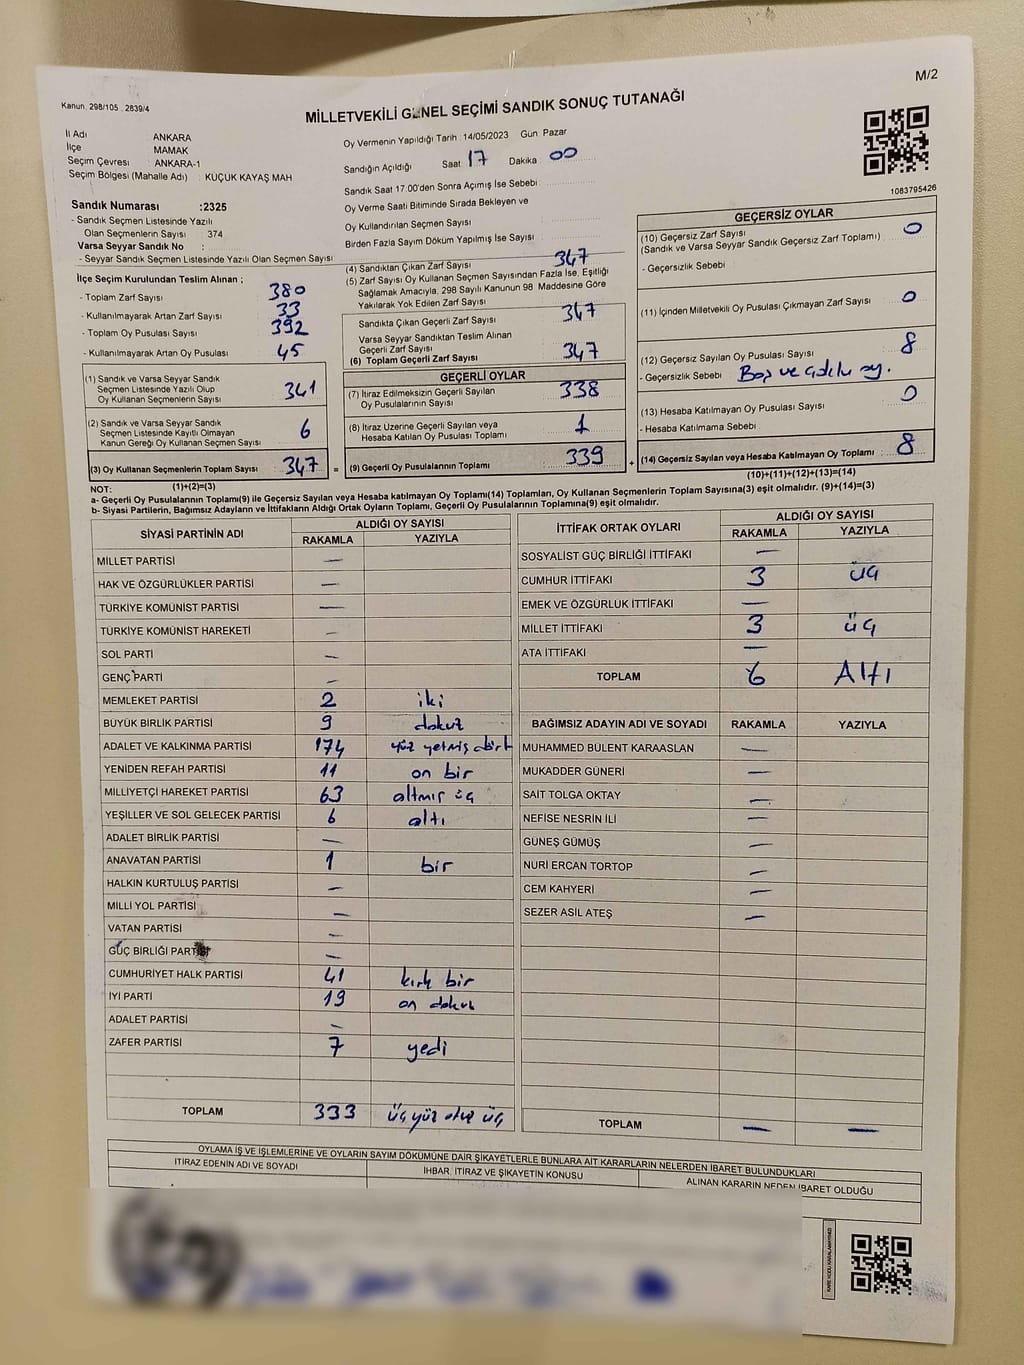 M/2
Kanun. 298/105 . 2839/4
MİLLETVEKİLİ GENEL SEÇİMİ SANDIK SONUÇ TUTANAĞI
İl Adı ANKARA
İlçe MAMAK
Seçim Çevresi : ANKARA-1
Seçim Bölgesi (Mahalle Adı) : KÜÇÜK KAYAŞ MAH
Oy Vermenin Yapıldığı Tarih : 14/05/2023 Gün: Pazar
Sandığın Açıldığı Saat 17 Dakika 00
Sandık Saat 17:00'den Sonra Açımış İse Sebebi :
Oy Verme Saati Bitiminde Sırada Bekleyen ve
Oy Kullandırılan Seçmen Sayısı
Birden Fazla Sayım Döküm Yapılmış İse Sayısı :
1083795426
Sandık Numarası :2325
- Sandık Seçmen Listesinde Yazılı
Olan Seçmenlerin Sayısı : 374
Varsa Seyyar Sandık No :
- Seyyar Sandık Seçmen Listesinde Yazılı Olan Seçmen Sayısı
İlçe Seçim Kurulundan Teslim Alınan ;
- Toplam Zarf Sayısı 380
- Kullanılmayarak Artan Zarf Sayısı : 33
- Toplam Oy Pusulası Sayısı : 392
- Kullanılmayarak Artan Oy Pusulası : 45
(1) Sandık ve Varsa Seyyar Sandık
Seçmen Listesinde Yazılı Olup
Oy Kullanan Seçmenlerin Sayısı : 341
(2) Sandık ve Varsa Seyyar Sandık
Seçmen Listesinde Kayıtlı Olmayan
Kanun Gereği Oy Kullanan Seçmen Sayısı : 6
(3) Oy Kullanan Seçmenlerin Toplam Sayısı : 347 =
(1)+(2)=(3)
(4) Sandıktan Çıkan Zarf Sayısı 347
(5) Zarf Sayısı Oy Kullanan Seçmen Sayısından Fazla İse, Eşitliği
Sağlamak Amacıyla, 298 Sayılı Kanunun 98. Maddesine Göre
Yakılarak Yok Edilen Zarf Sayısı :
Sandıkta Çıkan Geçerli Zarf Sayısı : 347
Varsa Seyyar Sandıktan Teslim Alınan
Geçerli Zarf Sayısı :
(6) Toplam Geçerli Zarf Sayısı : 347
GEÇERLİ OYLAR
(7) İtiraz Edilmeksizin Geçerli Sayılan
Oy Pusulalarının Sayısı : 338
(8) İtiraz Üzerine Geçerli Sayılan veya
Hesaba Katılan Oy Pusulası Toplamı : 1
(9) Geçerli Oy Pusulalarının Toplamı : 339 +
GEÇERSİZ OYLAR
(10) Geçersiz Zarf Sayısı 0
(Sandık ve Varsa Seyyar Sandık Geçersiz Zarf Toplamı) :
- Geçersizlik Sebebi :
(11) İçinden Milletvekili Oy Pusulası Çıkmayan Zarf Sayısı : 0
(12) Geçersiz Sayılan Oy Pusulası Sayısı : 8
- Geçersizlik Sebebi : Boş ve oy.
(13) Hesaba Katılmayan Oy Pusulası Sayısı : 0
- Hesaba Katılmama Sebebi :
(14) Geçersiz Sayılan veya Hesaba Katılmayan Oy Toplamı : 8
(10)+(11)+(12)+(13)=(14)
NOT:
a- Geçerli Oy Pusulalarının Toplamı(9) ile Geçersiz Sayılan veya Hesaba katılmayan Oy Toplamı(14) Toplamları, Oy Kullanan Seçmenlerin Toplam Sayısına(3) eşit olmalıdır. (9)+(14)=(3)
b- Siyasi Partilerin, Bağımsız Adayların ve İttifakların Aldığı Ortak Oyların Toplamı, Geçerli Oy Pusulalarının Toplamına(9) eşit olmalıdır.
SİYASİ PARTİNİN ADI ALDIĞI OY SAYISI
RAKAMLA YAZIYLA
MİLLET PARTİSİ —
HAK VE ÖZGÜRLÜKLER PARTİSİ —
TÜRKİYE KOMÜNİST PARTİSİ —
TÜRKİYE KOMÜNİST HAREKETİ —
SOL PARTİ —
GENÇ PARTİ —
MEMLEKET PARTİSİ 2 iki
BÜYÜK BİRLİK PARTİSİ 9 dokuz
ADALET VE KALKINMA PARTİSİ 174 yüz yetmiş dört
YENİDEN REFAH PARTİSİ 11 on bir
MİLLİYETÇİ HAREKET PARTİSİ 63 altmış üç
YEŞİLLER VE SOL GELECEK PARTİSİ 6 altı
ADALET BİRLİK PARTİSİ —
ANAVATAN PARTİSİ 1 bir
HALKIN KURTULUŞ PARTİSİ —
MİLLİ YOL PARTİSİ —
VATAN PARTİSİ —
GÜÇ BİRLİĞİ PARTİSİ —
CUMHURİYET HALK PARTİSİ 41 kırk bir
İYİ PARTİ 19 on dokuz
ADALET PARTİSİ —
ZAFER PARTİSİ 7 yedi
TOPLAM 333 üç yüz otuz üç
İTTİFAK ORTAK OYLARI ALDIĞI OY SAYISI
RAKAMLA YAZIYLA
SOSYALİST GÜÇ BİRLİĞİ İTTİFAKI —
CUMHUR İTTİFAKI 3 üç
EMEK VE ÖZGÜRLÜK İTTİFAKI —
MİLLET İTTİFAKI 3 üç
ATA İTTİFAKI —
TOPLAM 6 Altı
BAĞIMSIZ ADAYIN ADI VE SOYADI RAKAMLA YAZIYLA
MUHAMMED BÜLENT KARAASLAN —
MUKADDER GÜNERİ —
SAİT TOLGA OKTAY —
NEFİSE NESRİN İLİ —
GÜNEŞ GÜMÜŞ —
NURİ ERCAN TORTOP —
CEM KAHYERİ —
SEZER ASİL ATEŞ —
TOPLAM — —
OYLAMA İŞ VE İŞLEMLERİNE VE OYLARIN SAYIM DÖKÜMÜNE DAİR ŞİKAYETLERLE BUNLARA AİT KARARLARIN NELERDEN İBARET BULUNDUKLARI
İTİRAZ EDENİN ADI VE SOYADI İHBAR, İTİRAZ VE ŞİKAYETİN KONUSU ALINAN KARARIN NEDEN İBARET OLDUĞU